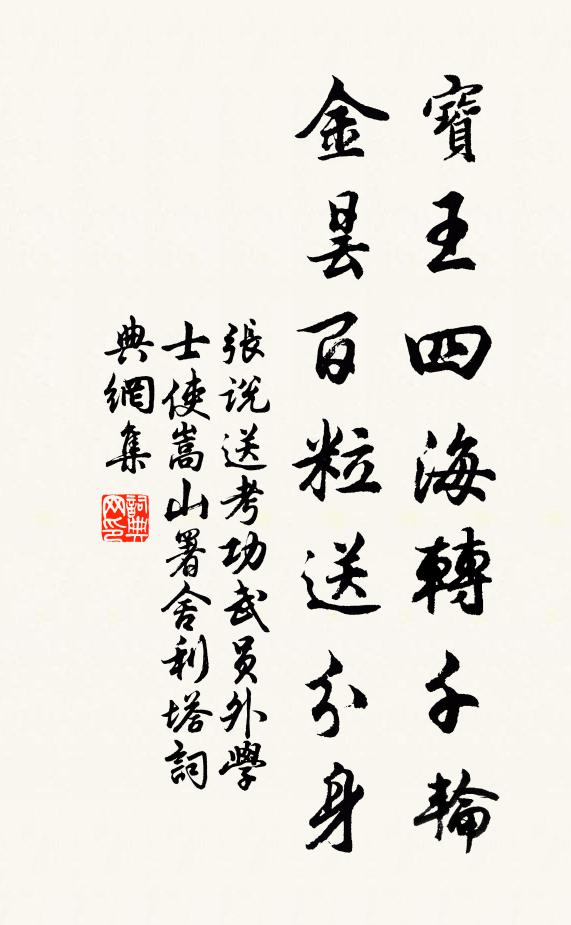 寶王四海轉千輪
金曇百粒送分身
張說送考功武員外學
士使嵩山署舍利塔詞
典網集
詞典
网印